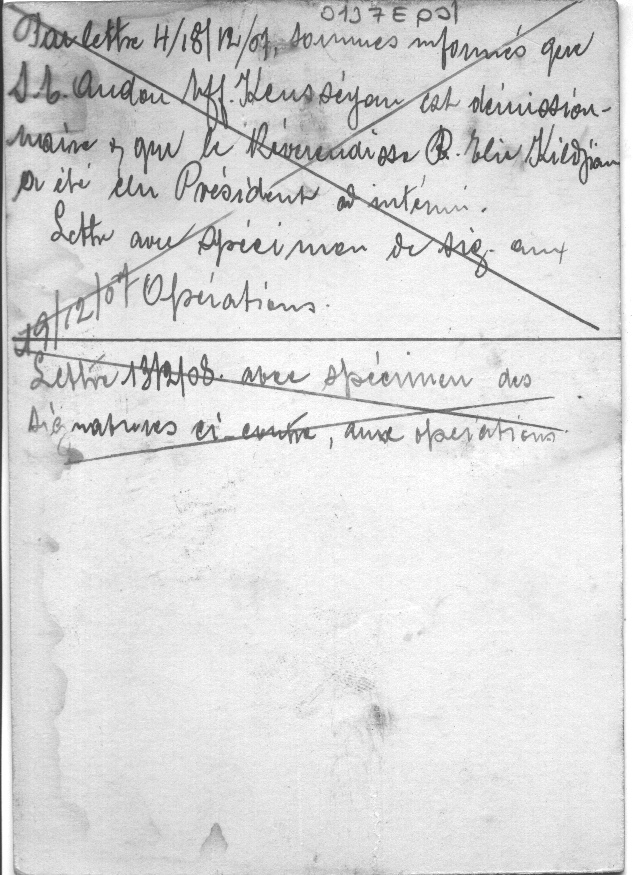 0137E001
Par lettre 4/18/12/07, sommes informés que
S.B. Andon Eff. Keusséyan est démission-
naire & que le Révérendisse R. Elie Kildjian
a été élu Président ad intérim.
Lettre avec spécimen de sig. aux
19/12/07 Opérations.
Lettre 13/2/08. avec spécimen des
signatures ci-contre, aux opérations